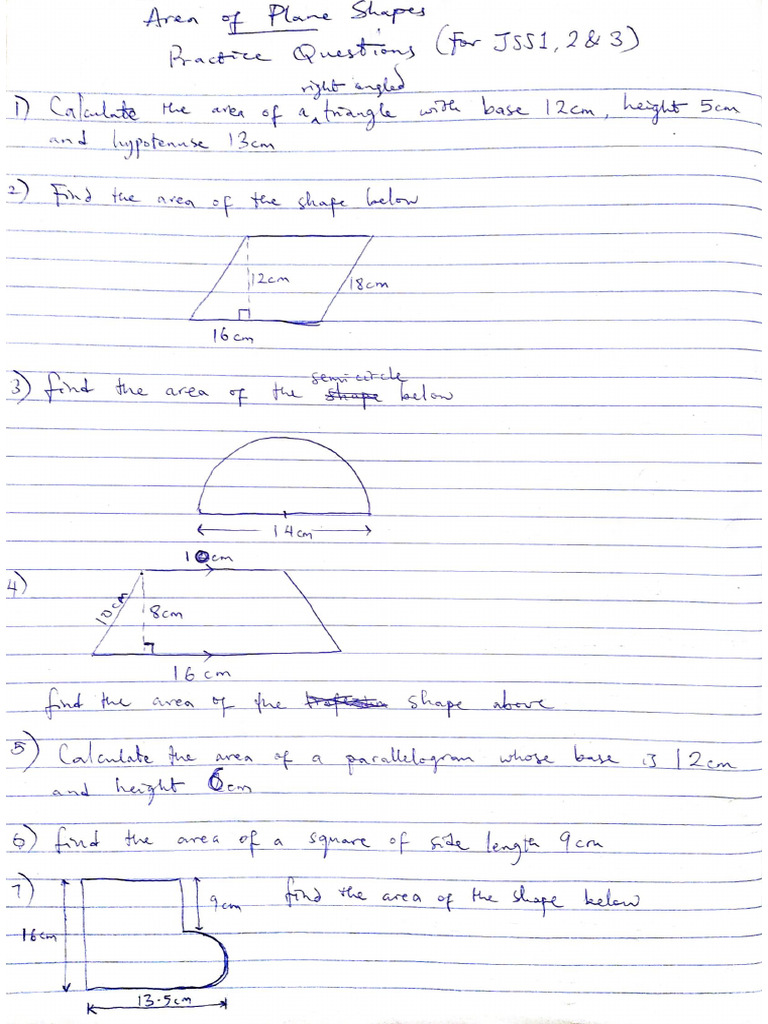 Area of Plane Shapes
Practice Questions (for JSS1, 2 & 3)
right angled
1) Calculate the area of a triangle with base 12cm, height 5cm
and hypotenuse 13cm
2) Find the area of the shape below
12cm
18cm
16cm
semicircle
3) find the area of the shape below
14cm
10cm
4)
10cm
8cm
16 cm
find the area of the shape above
5) Calculate the area of a parallelogram whose base is 12cm
and height 6cm
6) find the area of a square of side length 9cm
7)
9cm
find the area of the shape below
16cm
13.5cm